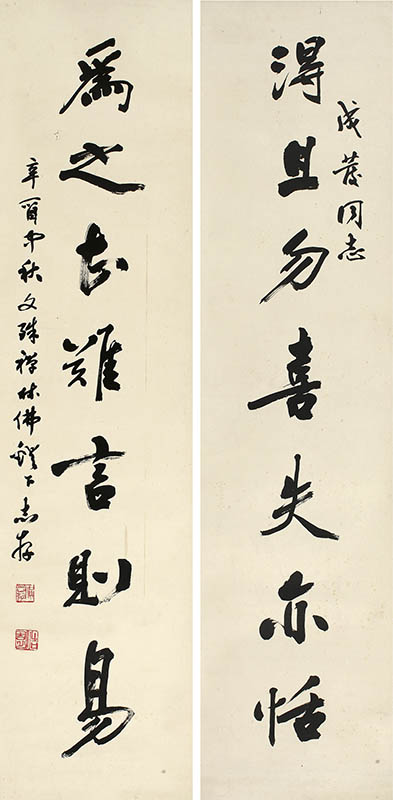 成 同志
得且勿喜失亦恬
為之 難言則易
辛酉中秋文殊禪林佛鐙下志